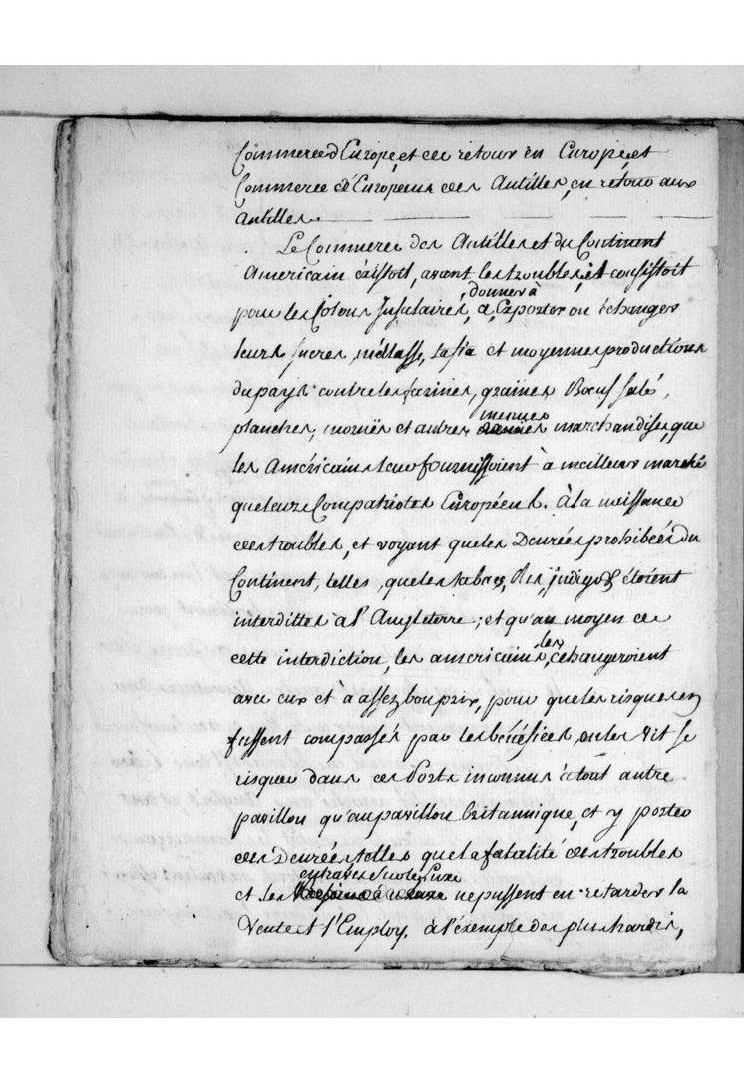 Commerce d'Europe, et de retour en Europe, et
Commerce d'Européens des Antilles, en retour aux
antilles.
Le Commerce des Antilles et du Continent
Americain existoit, avant les troubles, et consistoit
pour les Colons Insulaires, donner à Exporter ou échanger
leurs sucres mélasse, tafia et moyennes productions
du pays contre les farines, graines, Bœuf salé,
planches, moruës et autres menues marchandises, que
les Américains leur fournissoient à meilleur marché
que leurs Compatriotes Européens. À la naissance
des troubles, et voyant que les Denrées prohibées du
Continent, telles, que les tabacs, Ris, indigo &c étoient
interdittes à l'Angleterre; et qu'au moyen de
cette interdiction, les americains, les échangeroient
avec eux et à assez bon prix, pour que les risques en
fussent compassés par les bénéfices, on les vit se
risquer dans ces Ports inconnus à tout autre
pavillon qu'au pavillon britannique, et y porter
des Denrées telles que la fatalité des troubles
et les entraves du luxe ne pussent en retarder la
Vente et l'Employ. à l'éxemple des plus hardis,